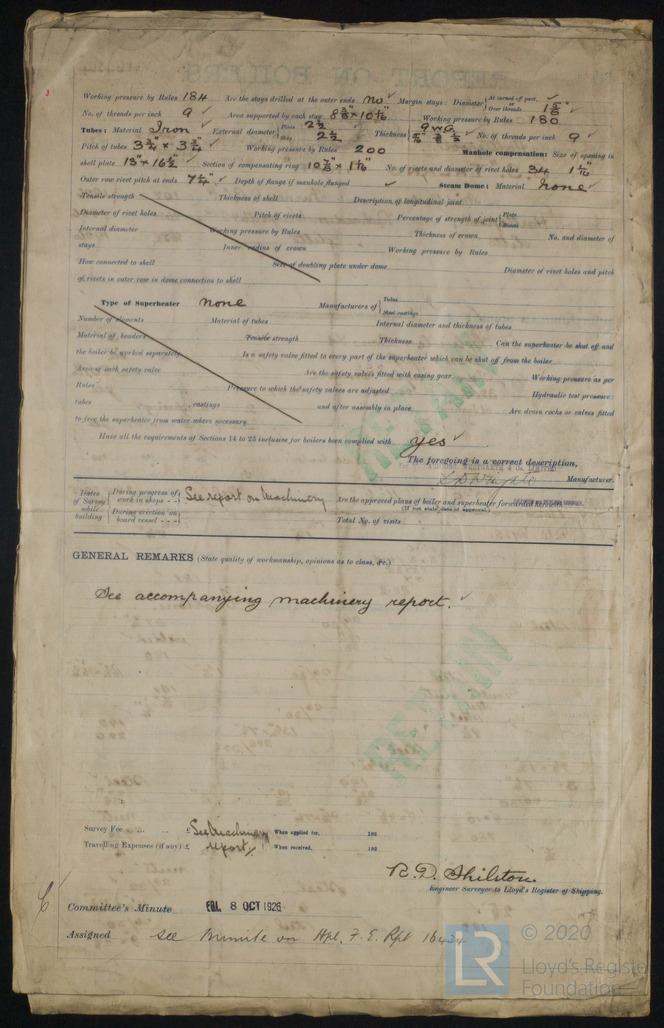 Working pressure by Rules 184 Are the stays drilled at the outer ends no Margin stays: Diameter { At turned off part, or Over threads 1 5/8"
No. of threads per inch 9 Area supported by each stay 8 3/8" x 10 Working pressure by Rules 180
Tubes: Material Iron External diameter { Plain 2 1/2 Stay 2 1/2" Thickness { 9 WG No. of threads per inch 9
Pitch of tubes 3 3/4" x 3 3/4" Working pressure by Rules 200 Manhole compensation: Size of opening in
shell plate 13" x 16 1/2" Section of compensating ring No. of rivets and diameter of rivet holes 34 1 1/16
Outer row rivet pitch at ends 7 1/4" Depth of flange if manhole flanged Steam Dome: Material none
Tensile strength Thickness of shell Description of longitudinal joint
Diameter of rivet holes Pitch of rivets Percentage of strength of joint { Plate Rivets
Internal diameter Working pressure by Rules Thickness of crown No. and diameter of
stays Inner radius of crown Working pressure by Rules
How connected to shell Size of doubling plate under dome Diameter of rivet holes and pitch
of rivets in outer row in dome connection to shell
Type of Superheater none Manufacturers of { Tubes Steel castings
Number of elements Material of tubes Internal diameter and thickness of tubes
Material of headers Tensile strength Thickness Can the superheater be shut off and
the boiler be worked separately Is a safety valve fitted to every part of the superheater which can be shut off from the boiler
Area of each safety valve Are the safety valves fitted with easing gear Working pressure as per
Rules Pressure to which the safety valves are adjusted Hydraulic test pressure:
tubes castings and after assembly in place Are drain cocks or valves fitted
to free the superheater from water where necessary
Have all the requirements of Sections 14 to 25 inclusive for boilers been complied with yes
RETAIN
The foregoing is a correct description,
Manufacturer.
Dates of Survey while building { During progress of work in shops - - See report on Machinery
During erection on board vessel - - -
Are the approved plans of boiler and superheater forwarded herewith
(If not state date of approval.)
Total No. of visits
GENERAL REMARKS (State quality of workmanship, opinions as to class, &c.)
See accompanying machinery report.
RETAIN
Survey Fee ... ... £ See Machinery When applied for, 192
Travelling Expenses (if any) £ report. When received, 192
R.D. Shilston
Engineer Surveyor to Lloyd's Register of Shipping.
Committee's Minute FRI. 8 OCT 1926
Assigned See Minute on Hpl. F.E. Rpt
LR
© 2020
Lloyd's Register
Foundation